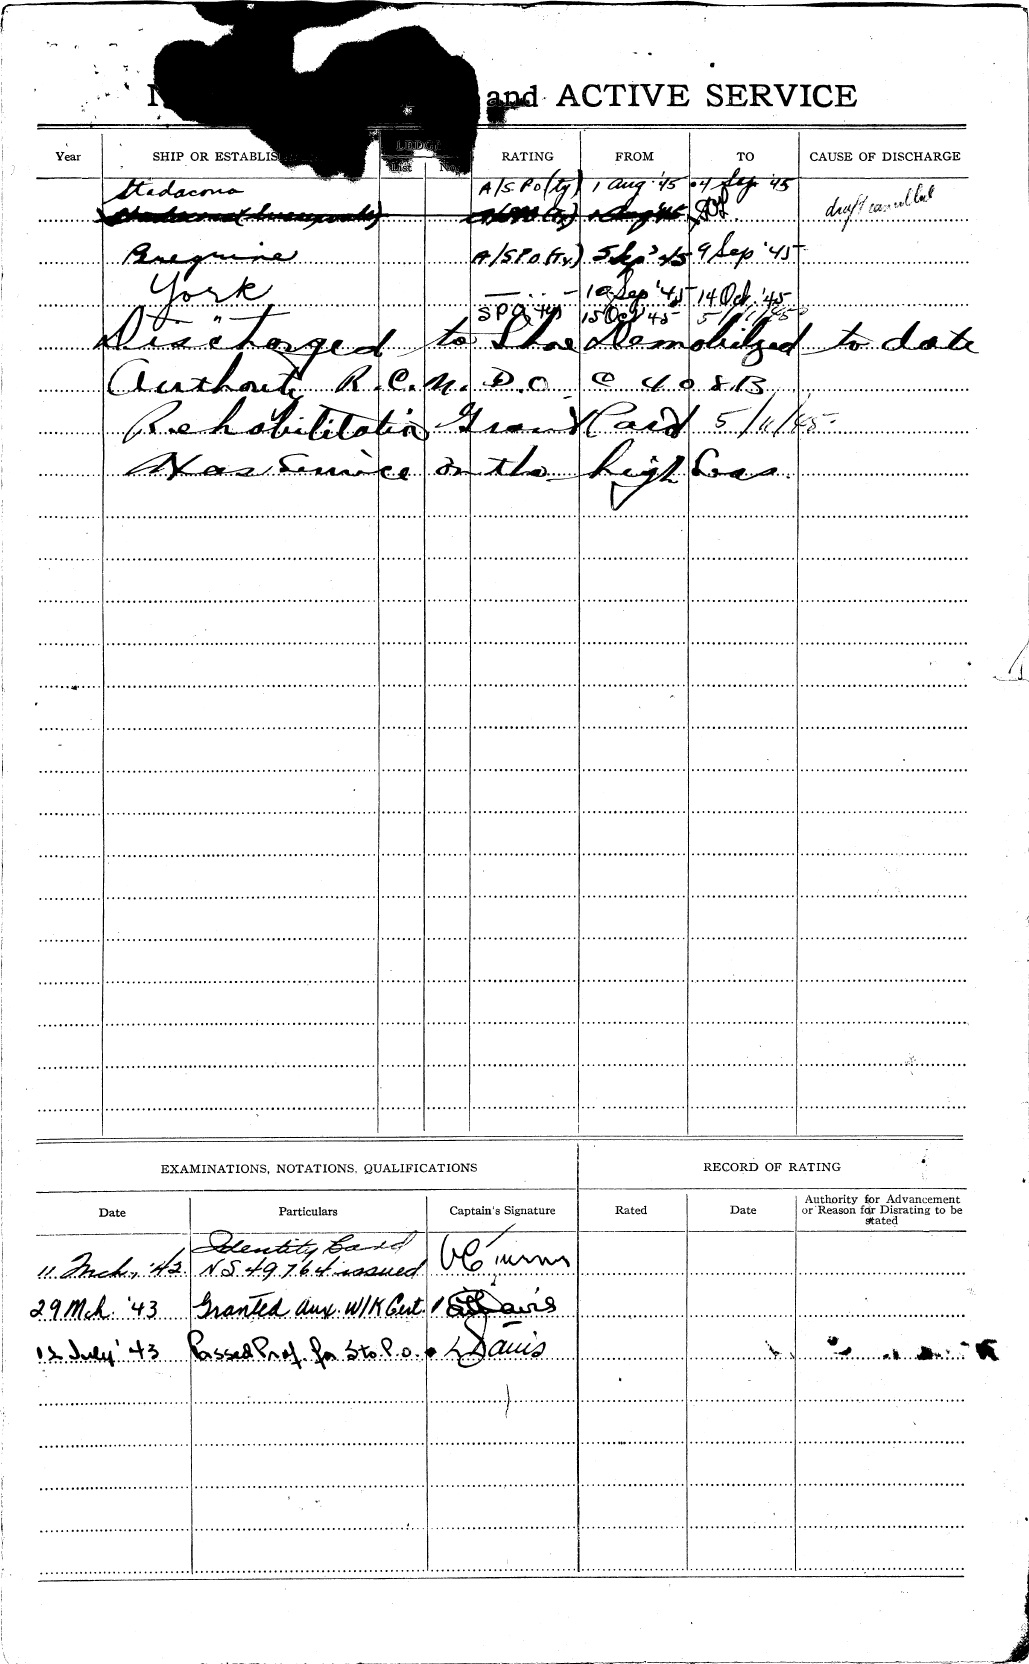 and ACTIVE SERVICE
Year SHIP OR ESTABLIS RATING FROM TO CAUSE OF DISCHARGE
Stadacona A/SPO(Ty) 1 Aug '45 04 Sep '45
draft cancelled
Peregrine A/SPO(Ty) 5 Sep '45 9 Sep '45
York — " — 10 Sep '45 14 Oct. '45
— " — SPO (Ty) 15 Oct '45 5/11/45
Discharged to Shore Demobilized to date
Authority R.C.N. D.O. C 408B
Rehabilitation Grant Paid 5/11/45
Has Service on the high Seas.
EXAMINATIONS, NOTATIONS, QUALIFICATIONS RECORD OF RATING
Date Particulars Captain's Signature Rated Date Authority for Advancement or Reason for Disrating to be stated
Identity Card
11 Mch., '42 NS 49764 issued
29 Mch. '43 Granted Aux. W/K Cert. Davis
12 July '43 Passed Prof. for Sto P.O. Davis